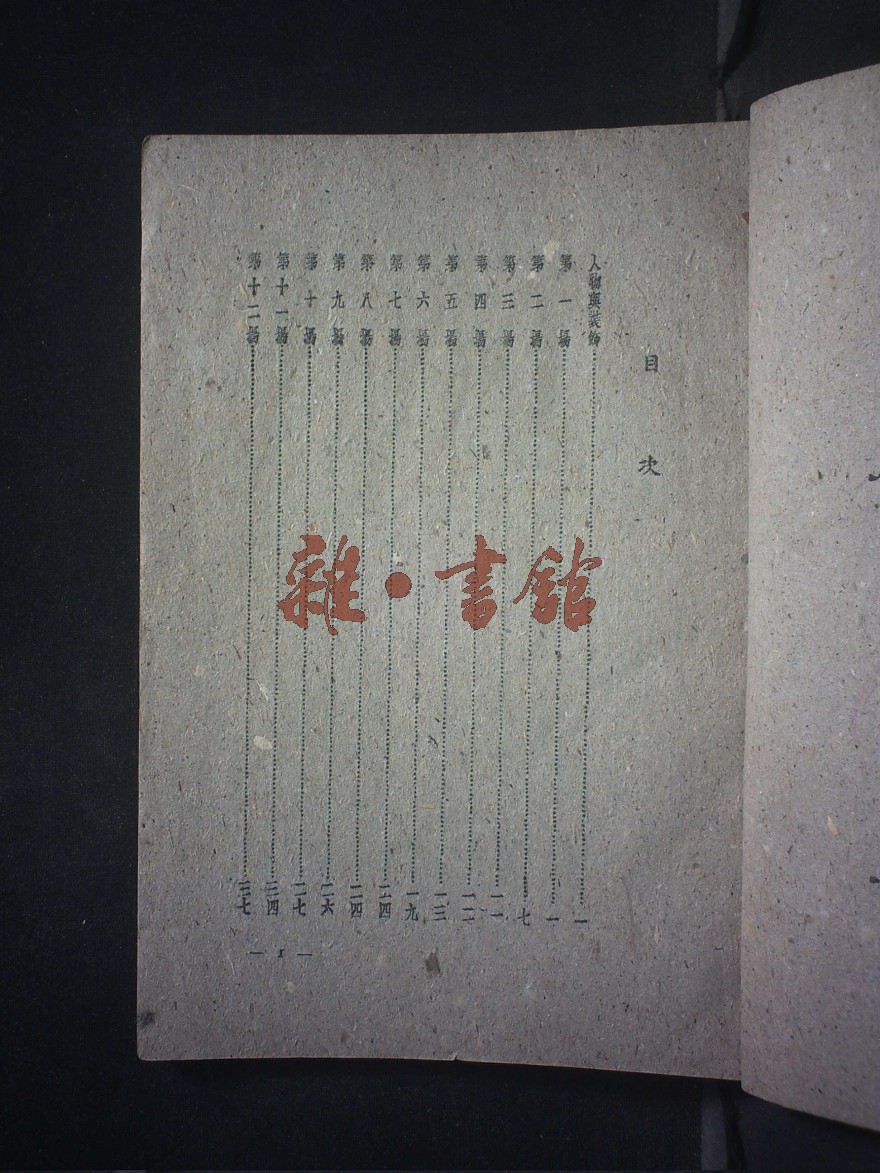 目次
人物與裝飾……一
第一場……一
第二場……七
第三場……一一
第四場……一二
第五場……一三
第六場……一九
第七場……二四
第八場……二四
第九場……二六
第十場……二七
第十一場……三四
第十二場……三七
— 1 —
雜·書館